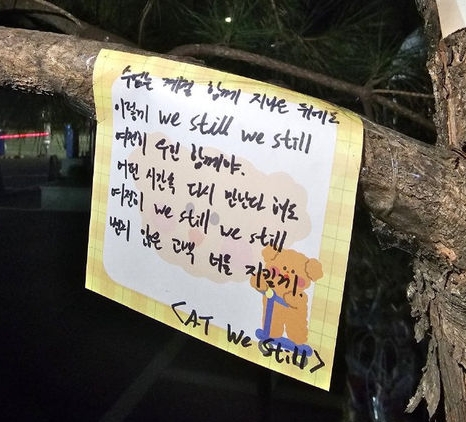 수없는 계절 함께 지나온 뒤에도
이렇게 we still we still
여전히 우린 함께야.
어떤 시간속 다시 만난다 해도
여전히 we still we still
변치 않은 고백 너를 지킬게.
<AT We Still>